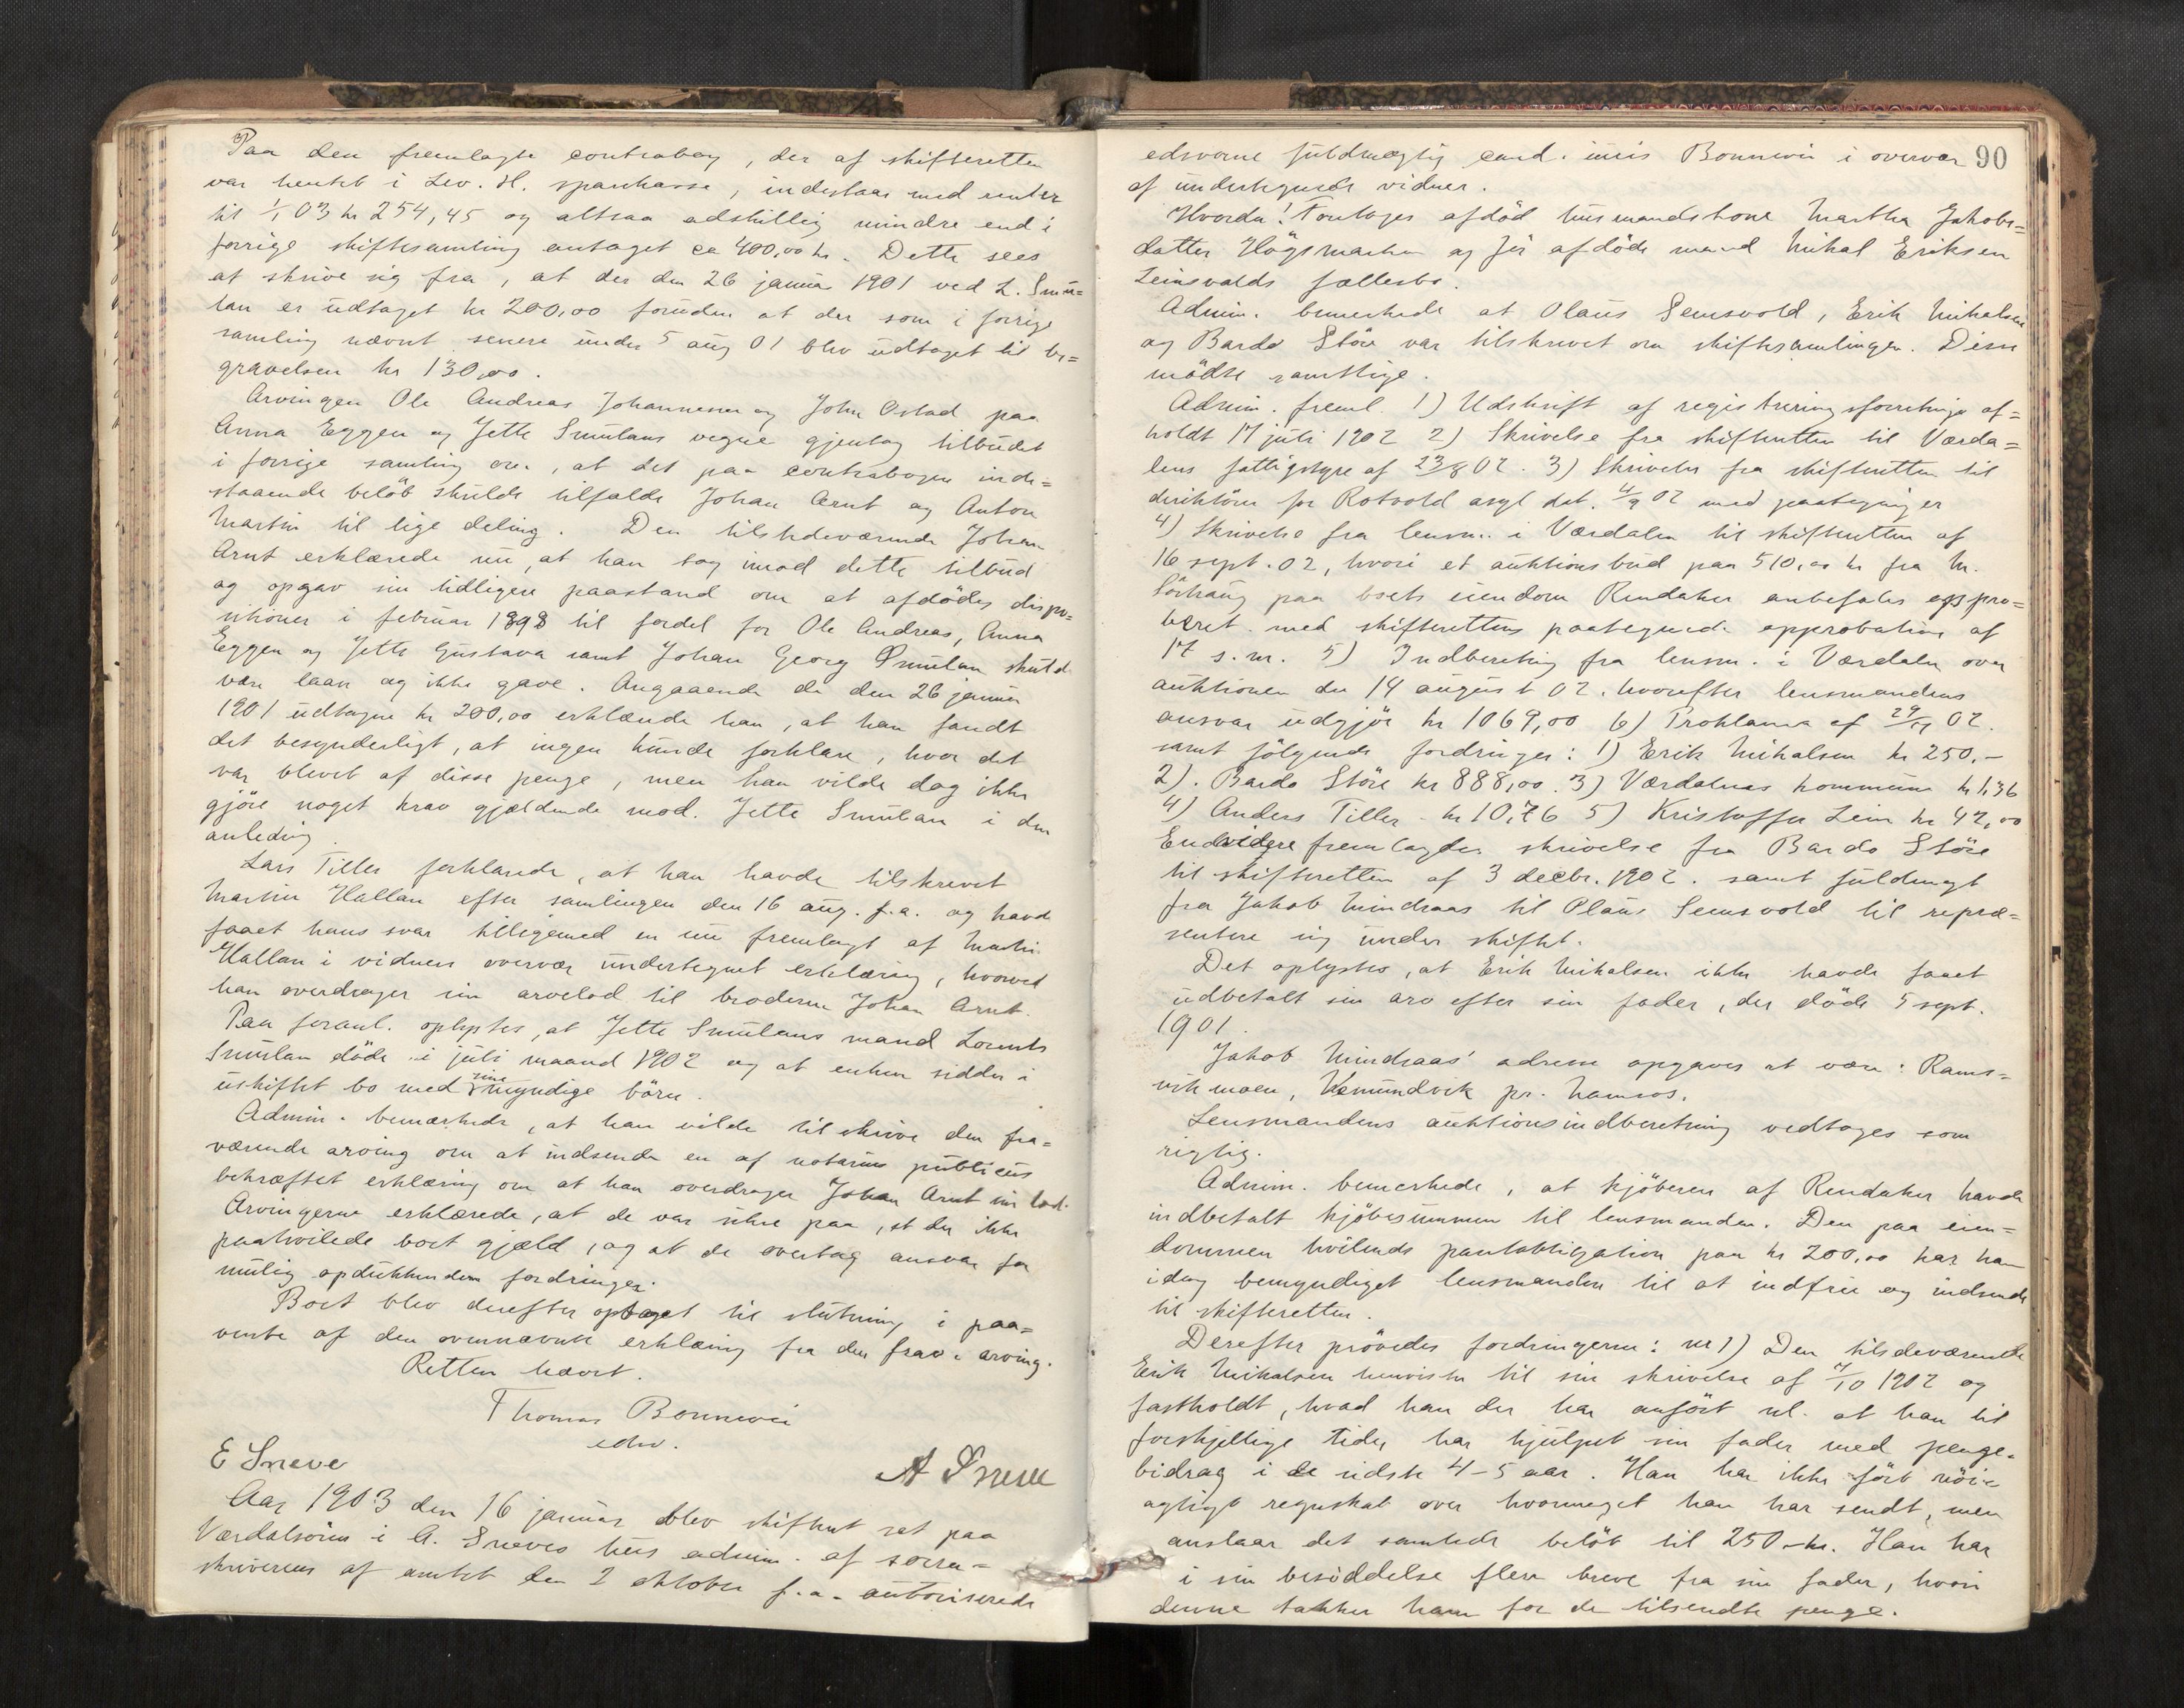 Paa den fremlagte contrabog, der af skifteretten
var hentet i Lev. H. sparekasse, indestaar med renter
til 1/1 03 kr 254,45 og altsaa adskillig mindre end i
forrige skiftesamling antaget ca 400,00 kr. Dette sees
at skrive sig fra, at der den 26 januar 1901 ved L. Smü=
lan er üdtaget kr 200,00 foruden at der som i forrige
samling nævnt senere ünder 5 aüg 01 blev üdtaget til be=
gravelsen kr 130,00.
Arvingen Ole Andreas Johannesen og John Ostad paa
Anna Eggen og Jette Smülans vegne gjentog tilbüdet
i forrige samling om, at det paa contrabogen inde=
staaende beløb skülde tilfalde Johan Arnt og Anton
Martin til lige deling. Den tilstedeværende Johan
Arnt erklærede nü, at han tog imod dette tilbüd
og opgav sin tidligere paastand om at afdødes dispo=
sitioner i februar 1898 til fordel for Ole Andreas, Anna
Eggen og Jette Güstava samt Johan Georg Smülan skülde
være laan og ikke gave. Angaaende de den 26 januar
1901 üdtagne kr 200,00 erklærede han, at han fandt
det besynderligt, at ingen künde forklare, hvor det
var blevet af disse penge, men han vilde dog ikke
gjöre noget krav gjældende mod. Jette Smülan i den
anledning
Lars Tiller forklarede, at han havde tilskrevet
Martin Hallan efter samlingen den 16 aüg. f.a. og havde
faaet hans svar tilligemed en nü fremlagt af Martin
Hallan i vidners overvær ündertegnet erklæring, hvorved
han overdrager sin arvelod til broderen Johan Arnt.
Paa foranl. oplystes, at Jette Smülans mand Lorents
Smülan döde i jüli maaned 1902 og at enken sidder i
üskiftet bo med sine myndige börn.
Admin. bemærkede, at han vilde tilskrive den fra=
værende arving om at indsende en af notariüs publicüs
bekræftet erklæring om at han overdrager Johan Arnt sin lod.
Arvingerne erklærede, at de var sikre paa, at der ikke
paahvilede boet gjæld, og at de overtog ansvar for
mülig opdükkendem fordringer.
Boet blev derefter optaget til slütning i paa=
vente af den ovennævnte erklæring fra den frav. arving.
Retten hævet.
Thomas Bonnevie
edsv.
E Sneve
A Sneve
Aar 1903 den 16 januar blev skifteret sat paa
Værdalsören i A. Sneves hüs admin. af soren=
skriverens af amtet den 2 oktober f.a. autoriserede
90
edsvorne füldmægtig cand. jüris Bonnevie i overvær
af ündertegnede vidner.
Hvorda! Foretoges afdöd hüsmandskone Martha Jakobs=
datter Högsmarken og för afdöde mand Mikal Eriksen
Leinsvalds fællesbo.
Admin. bemerkede at Olaüs Semsvold, Erik Mikalsen
og Bardo Störe var tilskrevet om skiftesamlingen. Disse
mödte samtlige.
Admin. freml. 1) Udskrift af registreringsforretninge af=
holdt 17 jüli 1902 2) Skrivelse fra skifteretten til Værda=
lens fattigstyre af 23/8 02. 3) Skrivelse fra skifteretten til
direktören for Rotvold asyl dat. 4/9 02 med paategninger
4) Skrivelse fra lensm. i Værdalen til skifteretten af
16 sept. 02, hvori et aüktionsbüd paa 510,00 kr fra M.
Sörhaüg paa boets eiendom Rendaker anbefales appro=
beret med skifterettens paategnede approbation af
17 s.m. 5) Indberetning fra lensm. i Værdalen over
aüktionen den 14 aügüst 02. hvorefter lensmandens
ansvar üdgjör kr 1069,00 6) Proklama af 29/11 02.
samt fölgende fordringer: 1) Erik Mikalsen kr 250.–
2). Bardo Störe kr 888,00. 3) Værdalens kommüne kr 1,36
4) Anders Tiller kr 10,76 5) Kristoffer Lein kr 42,00
Endvidere fremlagdes skrivelse fra Bardo Störe
til skifteretten af 3 decbr. 1902. samt füldmagt
fra Jakob Mindraas til Olaüs Semsvold til repræ=
sentere sig ünder skiftet.
Det oplystes, at Erik Mikalsen ikke havde faaet
üdbetalt sin arv efter sin fader, der döde 5 sept.
1901.
Jakob Mindraas' adresse opgaves at være: Rams=
vikmoen, Vemündvik pr. Namsos.
Lensmandens aüktionsindberetning vedtoges som
rigtig.
Admin. bemerkede, at kjöberen af Rendaker havde
indbetalt kjöbesümmen til lensmanden. Den paa eien=
dommen hvilende pantobligation paa kr 200,00 har han
idag bemyndiget lensmanden til at indfrie og indsende
til skifteretten.
Derefter prövedes fordringerne: nr 1) Den tilstedeværende
Erik Mikalsen henviste til sin skrivelse af 7/10 1902 og
fastholdt, hvad han der har anfört nl. at han til
forskjellige tider har hjülpet sin fader med penge=
bidrag i de sidste 4-5 aar. Han har ikke fört nöi=
agtigt regnskab over hvormeget han har sendt, men
anslaar det samlede belöb til 250.– kr. Han har
i sin besiddelse flere breve fra sin fader, hvori
denne takker ham for de tilsendte penge.